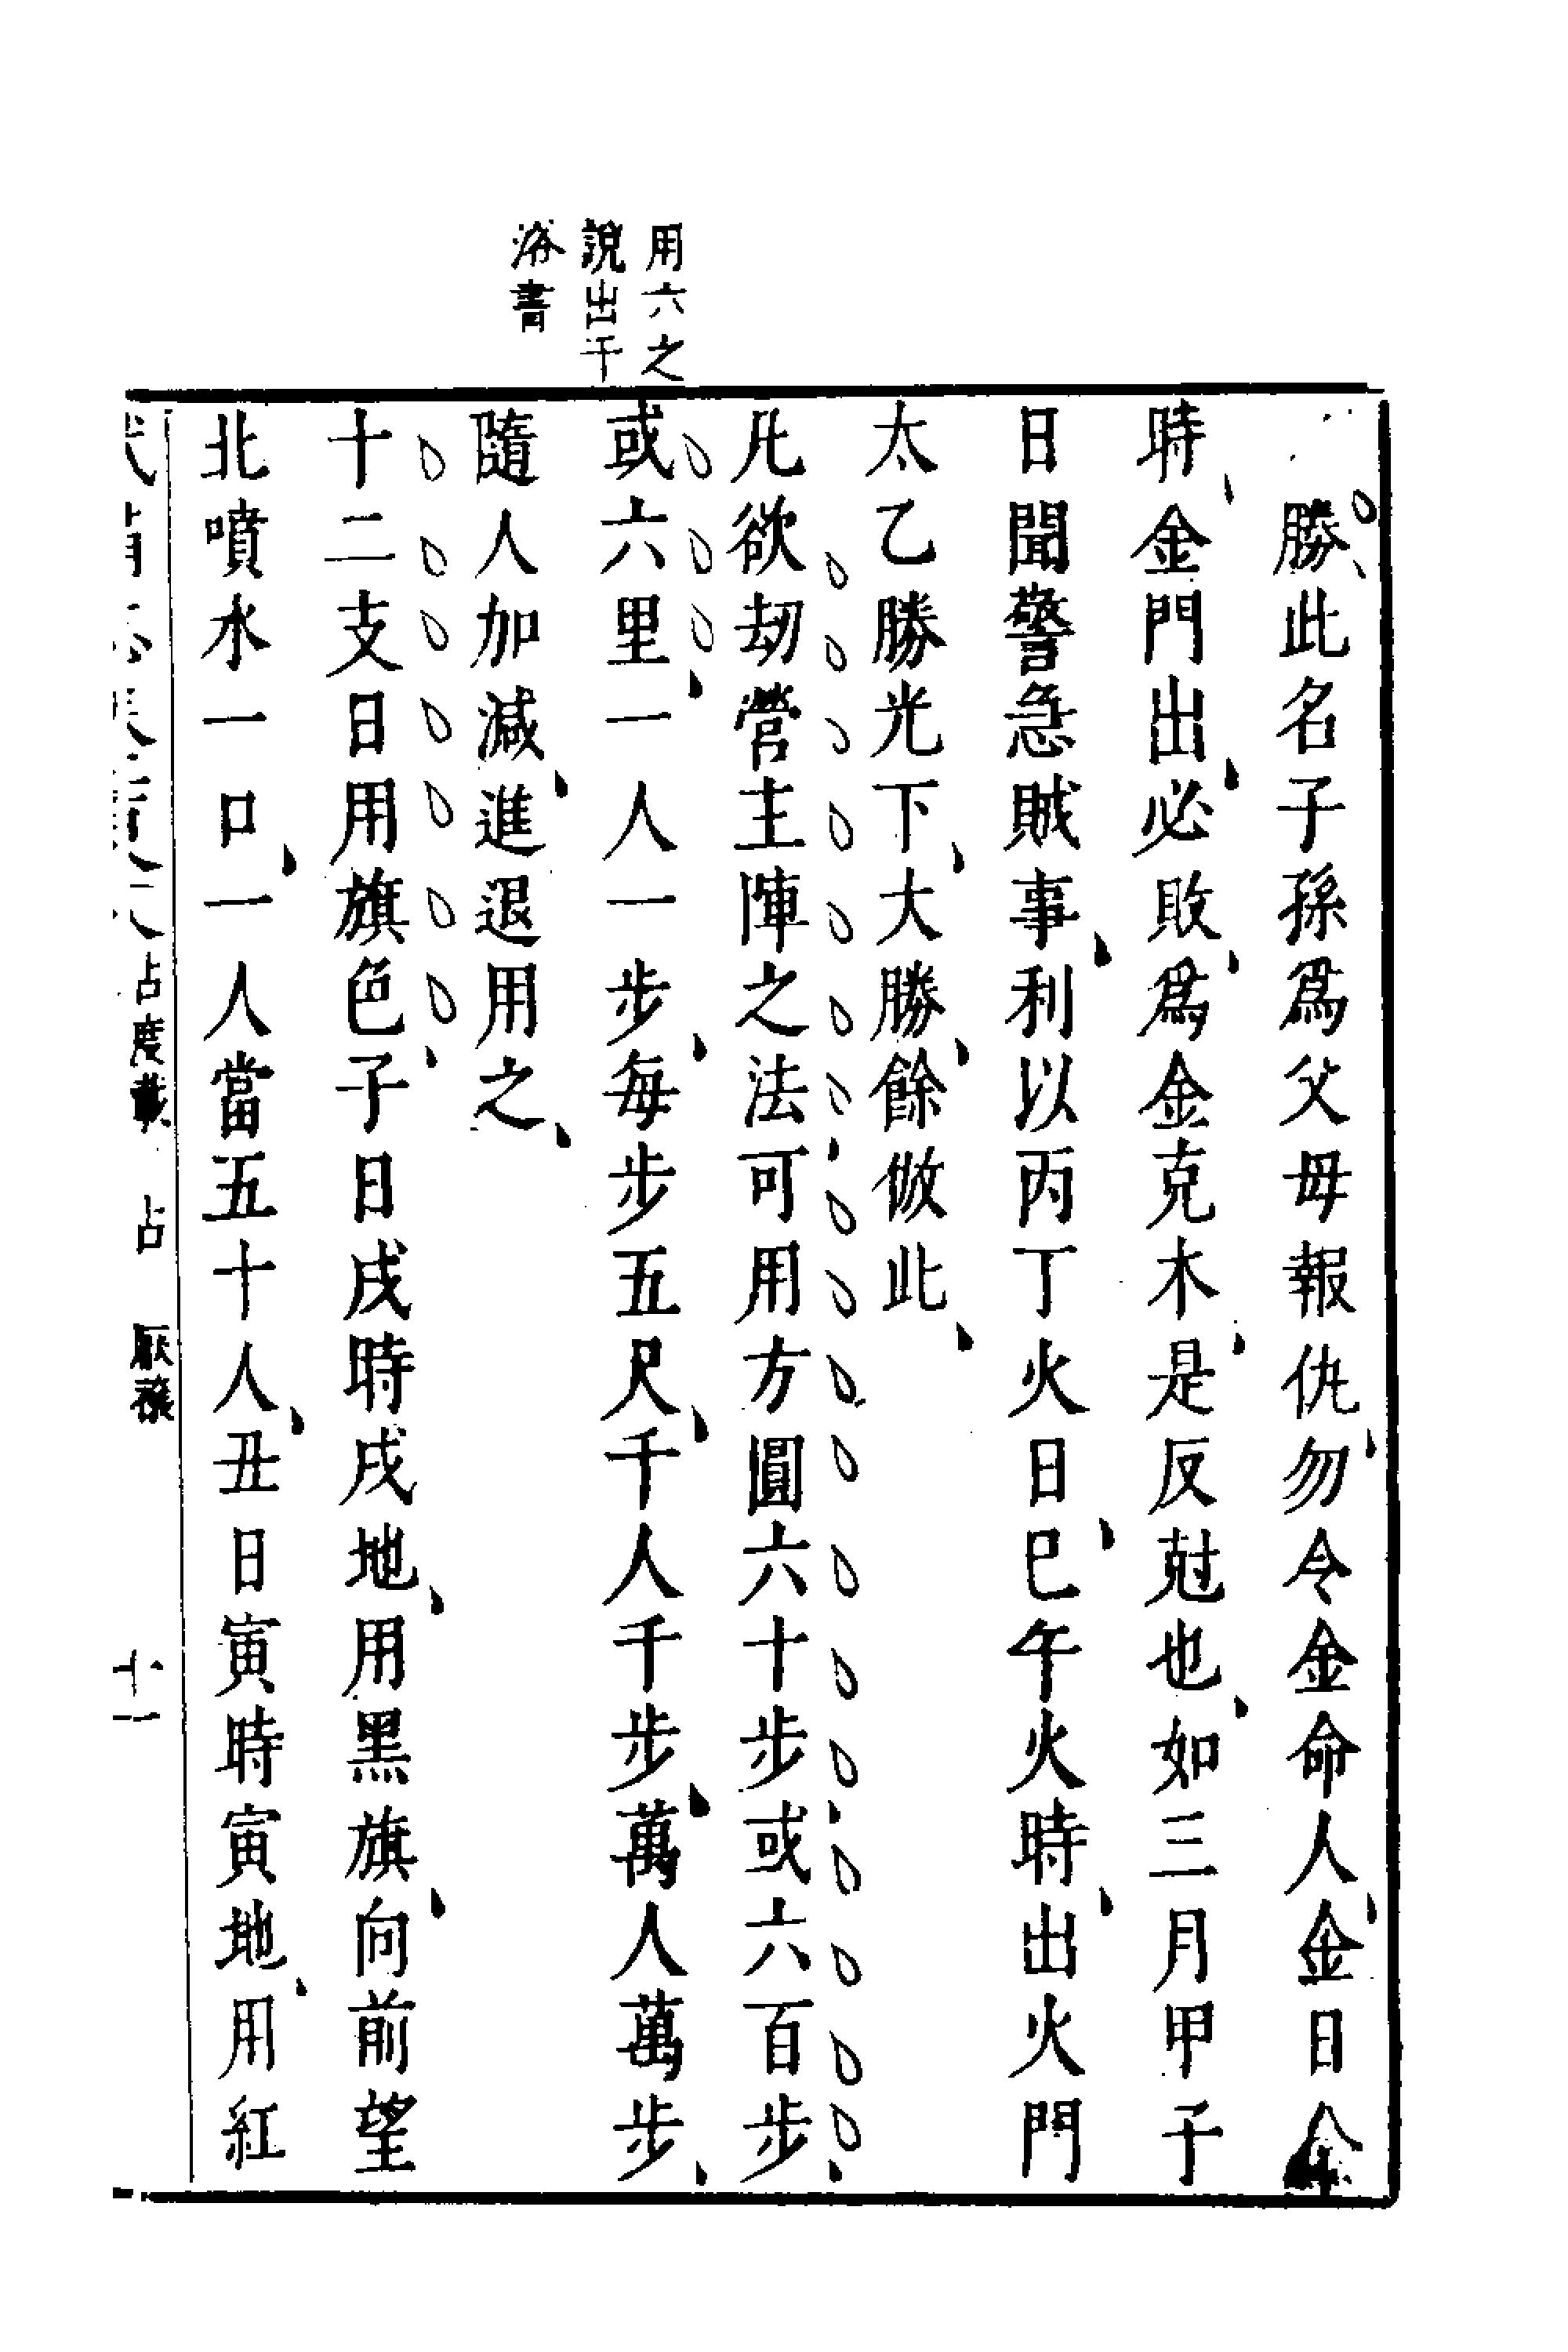 用六之
說出于
洛書
勝此名子孫爲父毋報仇勿令金命人金日金
時金門出必敗爲金克木是反尅也如三月甲子
日聞警急賊事利以丙丁火日巳午火時出火門
太乙勝光下大勝餘倣此
凡欲刼營主陣之法可用方圓六十步或六百步
或六里一人一步每步五尺千人千步萬人萬步
隨人加減進退用之
十二支日用旗色子日戌時戌地用黑旗向前望
北噴水一口一人當五十人丑日寅時寅地用紅
占度載 占 厭禳 十一